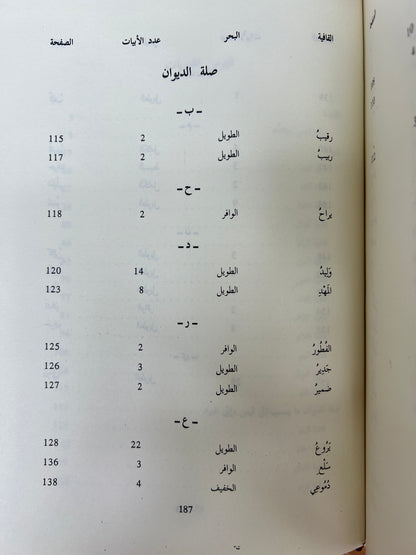 القافية البحر عدد الأبيات الصفحة
صلة الديوان
ـ ب ـ
رقيبُ الطويل 2 115
ربيبُ الطويل 2 117
ـ ح ـ
براحُ الوافر 2 118
ـ د ـ
وَلِيدُ الطويل 14 120
المُهَنَّدِ الطويل 8 123
ـ ر ـ
الفُطُورُ الوافر 2 125
جَدِيرُ الطويل 3 126
ضَمِيرُ الطويل 2 127
ـ ع ـ
يَرُوعُ الطويل 22 128
سَلْعِ الوافر 3 136
دُمُوعِي الخفيف 4 138
187